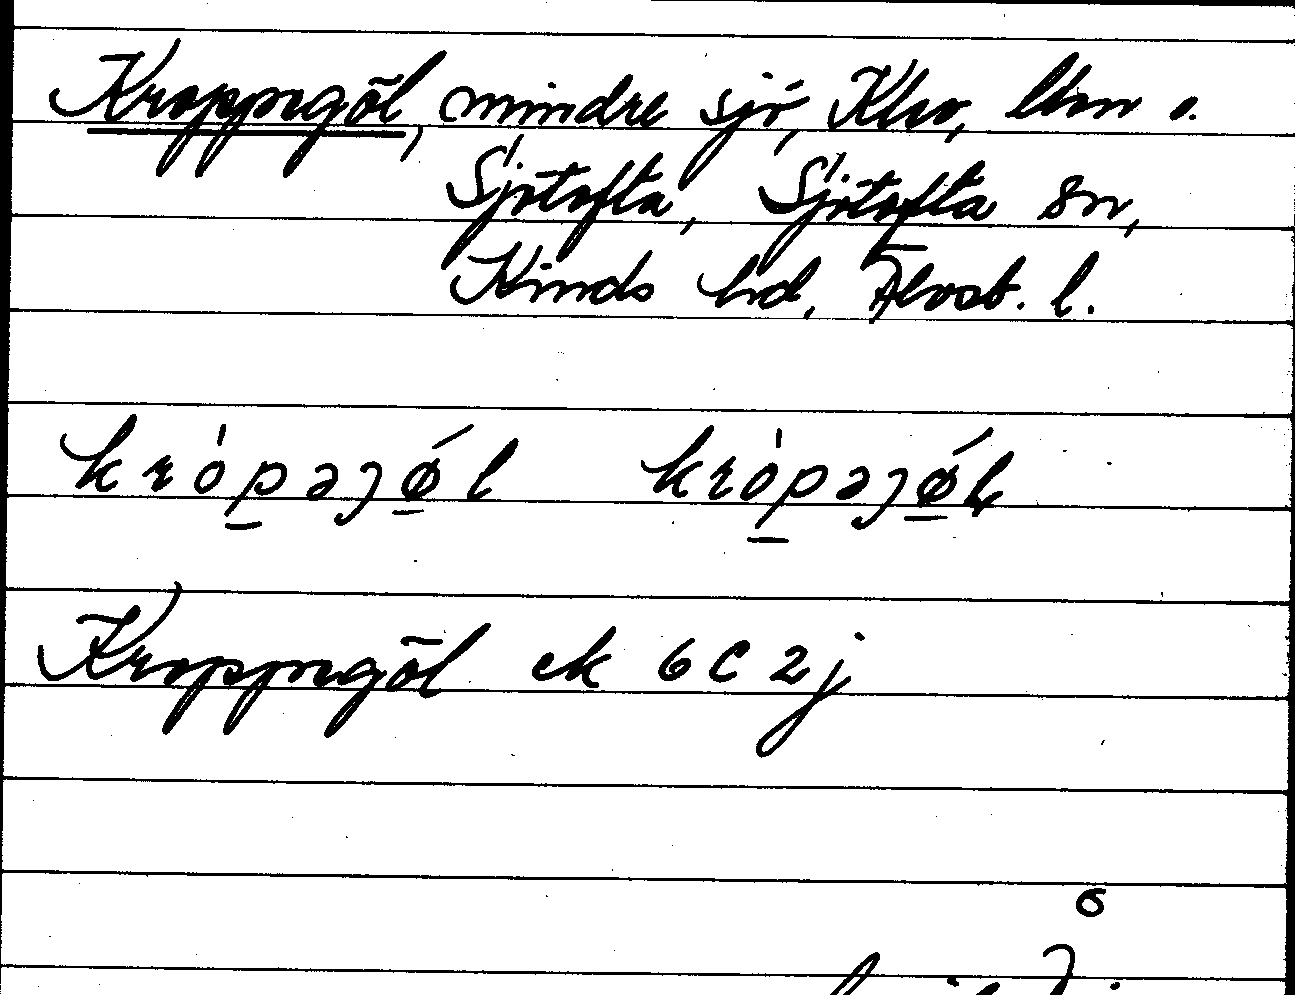 Kroppegöl, mindre sjö, Klev,
Sjötofta, Sjötofta sn,
Kinds hd, Älvsb. l.
krópəȷǿl krópəȷǿl
Kroppegöl ek 6C 2j